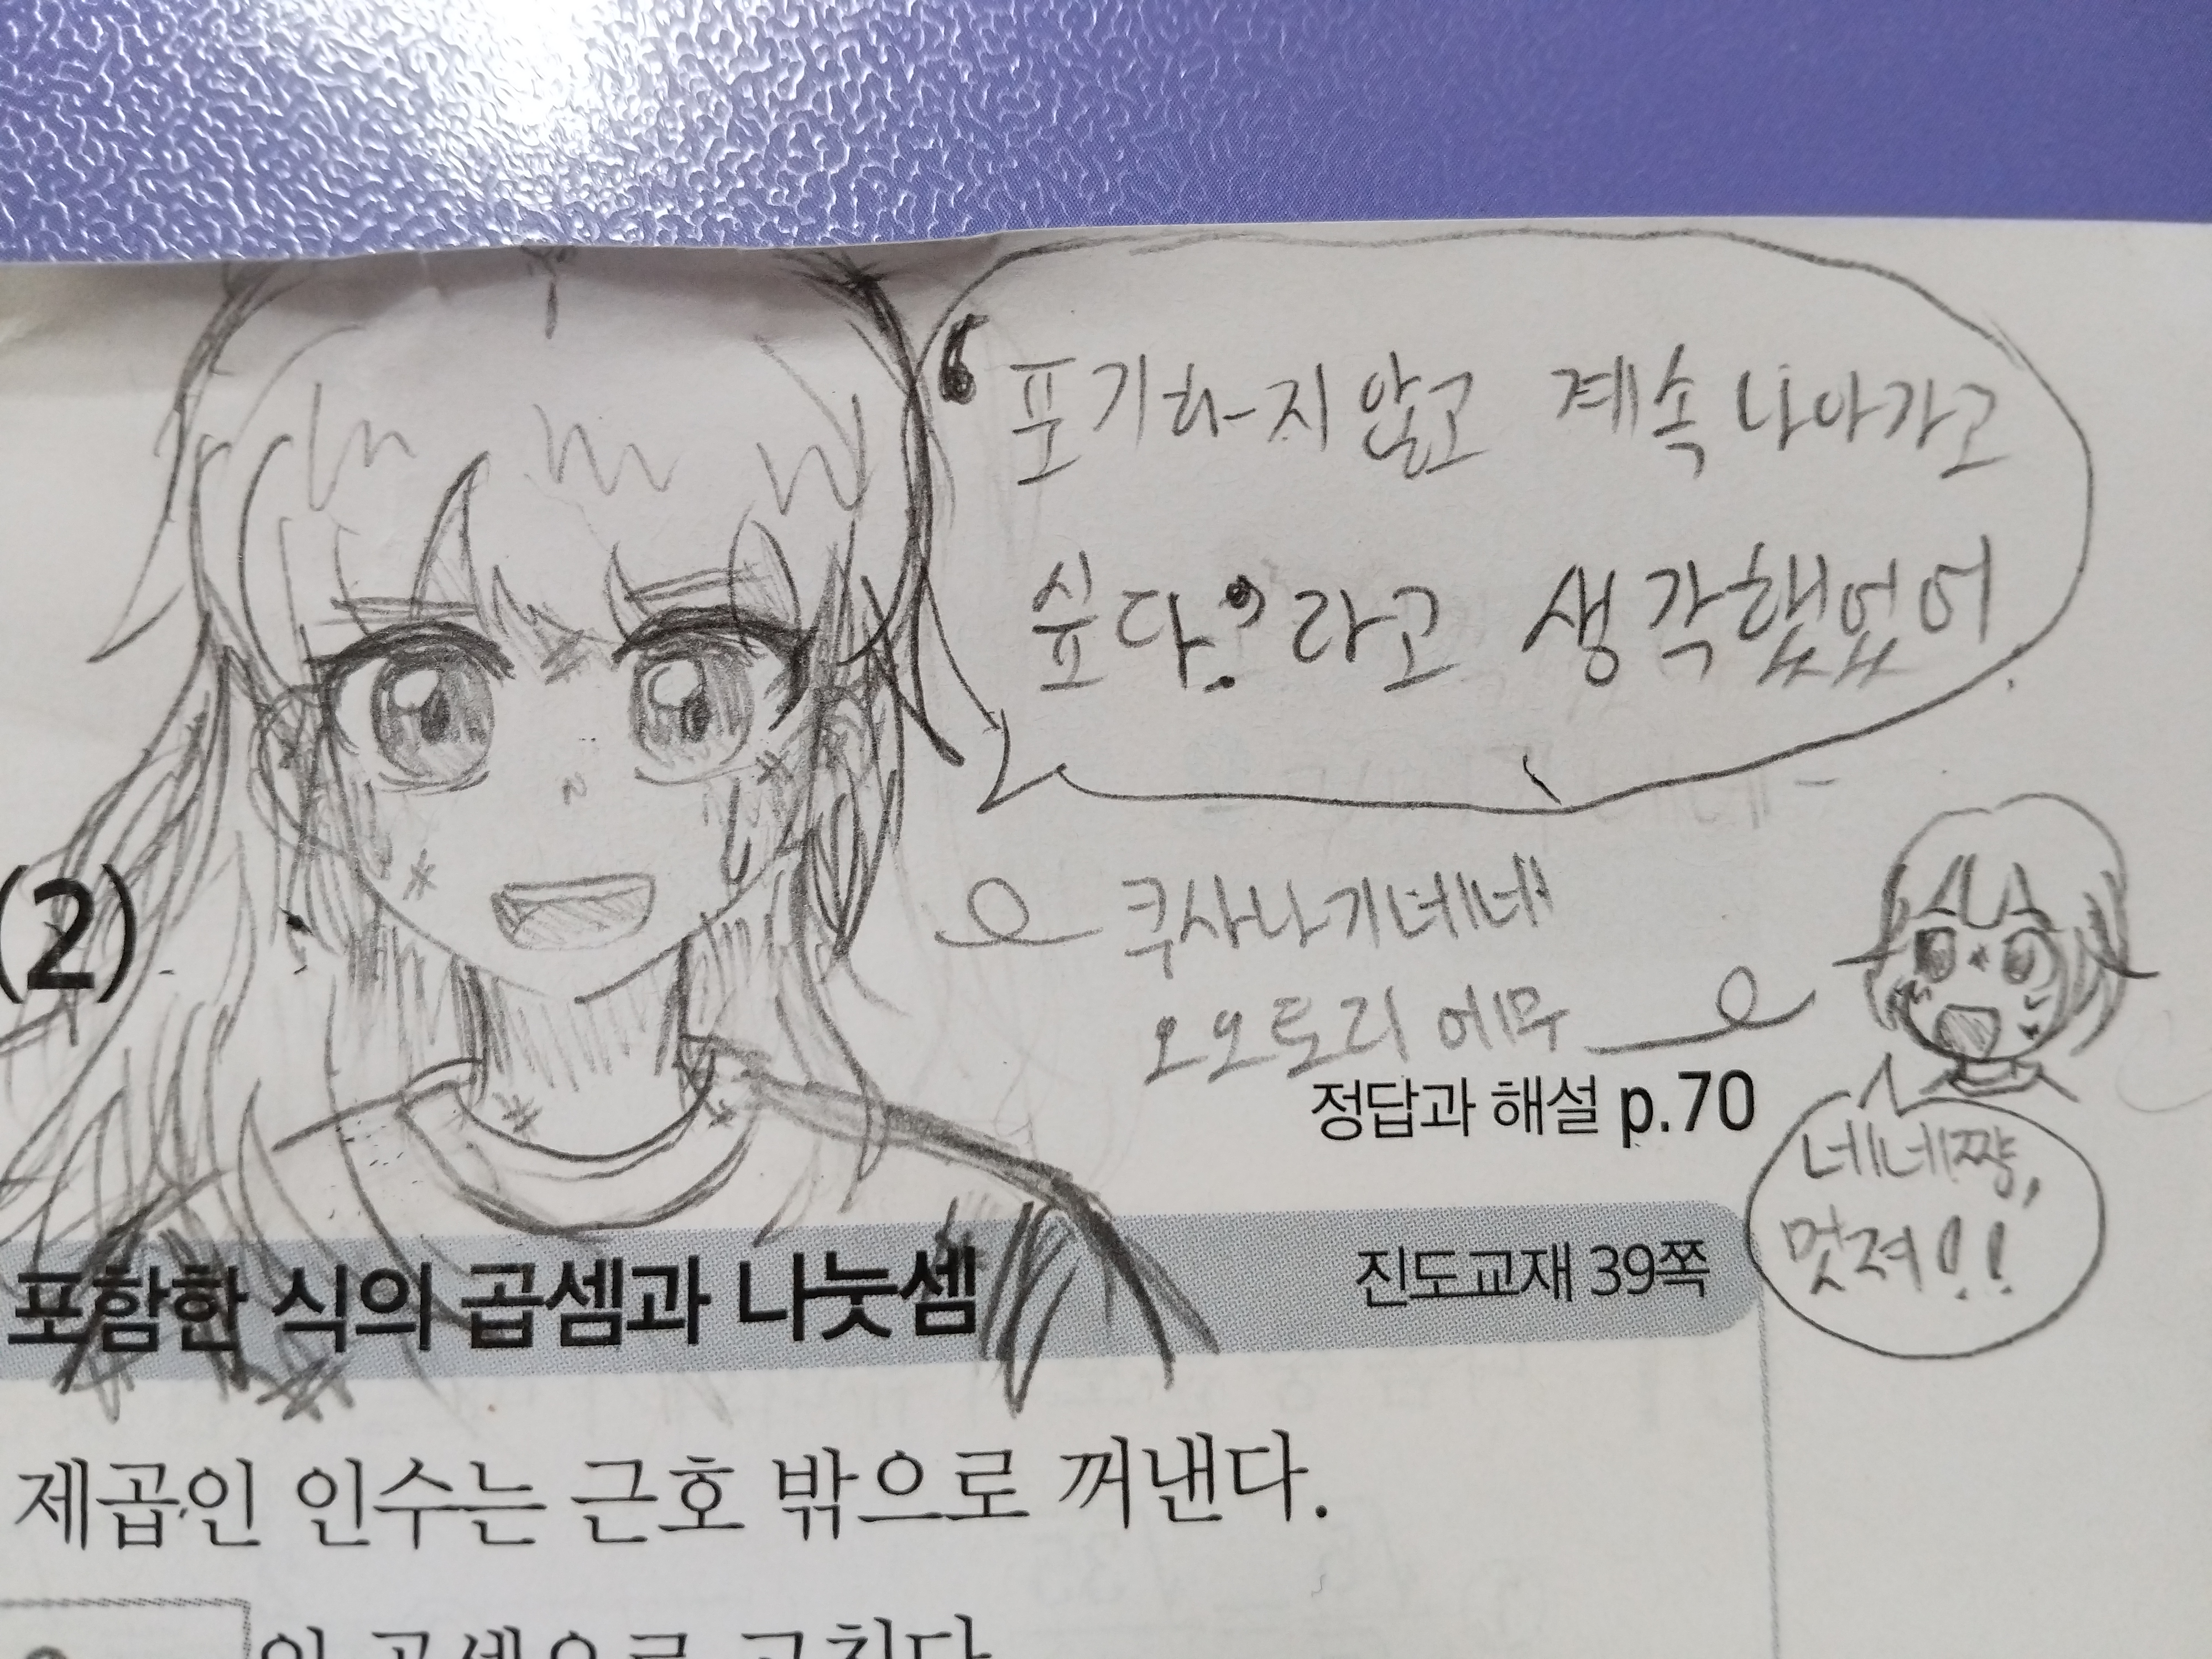 ‘포기하지 않고 계속 나아가고
싶다.’라고 생각했었어
쿠사나기네네
오오토리 에무
(2)
정답과 해설 p.70
네네쨩,
멋져!!
포함한 식의 곱셈과 나눗셈
진도교재 39쪽
제곱인 인수는 근호 밖으로 꺼낸다.
의 곱셈으로 고친다